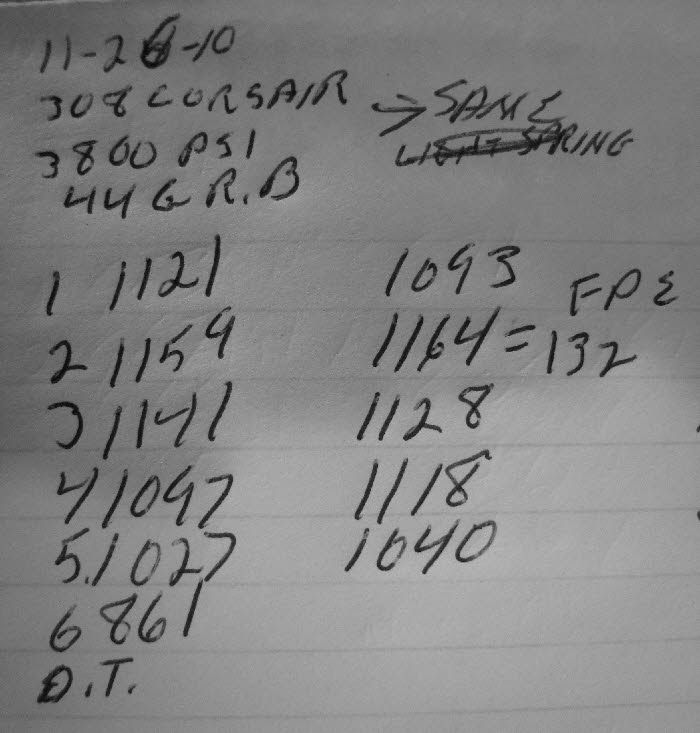 11-26-10
308 CORSAIR → SAME
3800 PSI LIGHT SPRING
44 GR. B
1 1121 1093 FPE
2 1159 1164 = 132
3 1141 1128
4 1097 1118
5. 1027 1040
6 861
D.T.